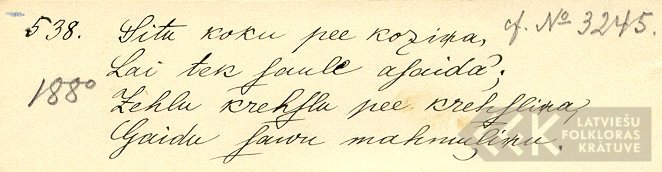 538. Situ koku pee koziņa, cf. № 3245.
Lai tek saule asaidā;
1880 Zehlu krehslu pee krehsliņa,
Gaidu sawu mahmuliņu.
LATVIEŠU
FOLKLORAS
KRĀTUVE